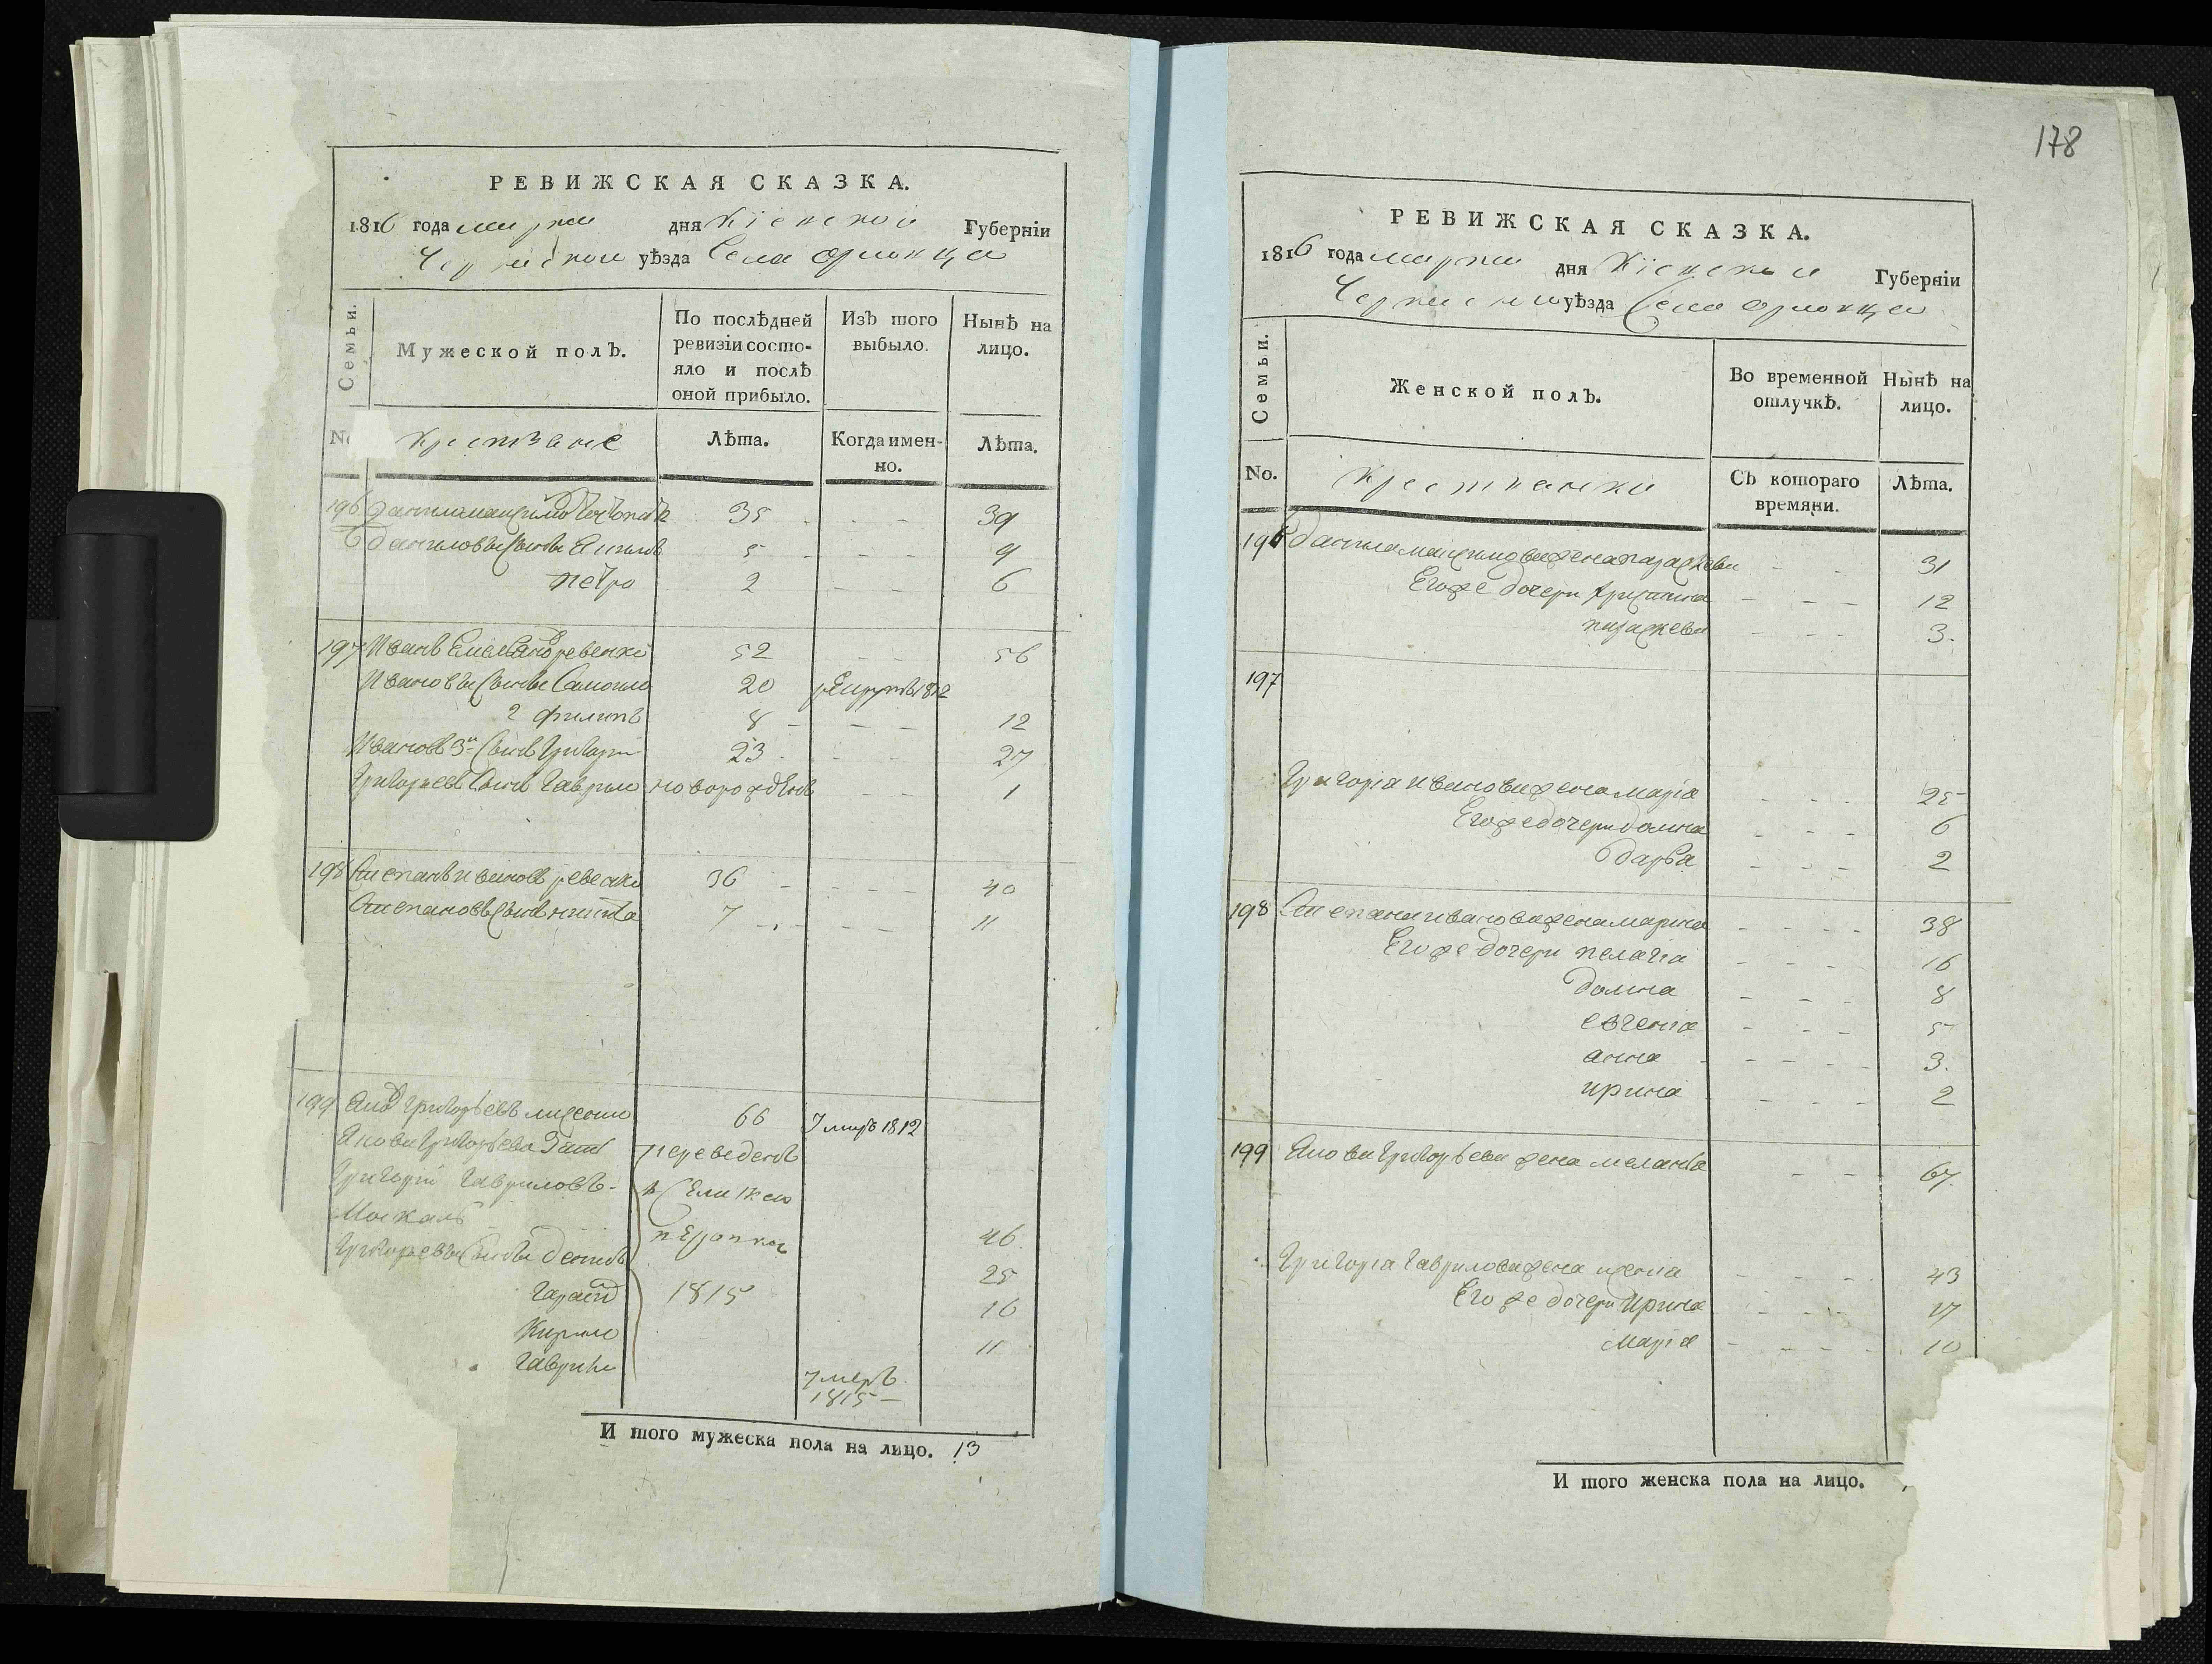 РЕВИЖСКАЯ СКАЗКА.
1816 года марта дня Кіевской Губерніи
Черкаскаго уѣзда Села орловца
Семьи.
Мужеской полЪ.
По послѣдней ревизіи состо-
яло и послѣ
оной прибыло.
ИзЪ того выбыло.
Нынѣ на лицо.
крестяне
Лѣта.
Когда имен-
но.
Лѣта.
196 данило максимовъ 35 - - 39
даниловы сыны 5 - - - 9
петро 2 - - 6
197 Иванъ ревенко 52 - - 56
Ивановы сыны Самоило 20 рекрутъ 1812
2 филипъ 8 - - - 12
Ивановъ 3й сынъ григори 23 - - 27
григорьевъ сынъ гаврило новорожденъ - - 1
198 степанъ ивановъ ревенко 36 - - - - 40
степановъ сынъ никита 7 - - - - 11
199 григорьевъ 66 умръ 1812
григорьева переведенъ
григорій гавриловъ
Москаль 46
григорьевы сыны 25
1815 16
Кирило 11
гаврило умеръ
1815 -
И того мужеска пола на лицо. 13
178
РЕВИЖСКАЯ СКАЗКА.
1816 года марта дня Кіевской Губерніи
Черкаскаго уѣзда Села орловца
Семьи.
Женской полЪ.
Во временной отлучкѣ.
Нынѣ на лицо.
No.
крестянки
СЪ котораго времяни.
Лѣта.
196 данила максимова жена параскева - - 31
Егоже дочери христина - - - 12
параскева - - - 3.
197
григорія иванова жена марія - - - 25
Егоже дочери домна - - - 6
дарья - - - 2
198 степана иванова жена марина - - - - 38
Егоже дочери пелагія - - - 16
домна - - - 8
евгенія - - - 5
анна - - - - 3.
ирина - - - 2
199 григорьева жена меланья - - 67.
григорія гаврилова жена - - - 43
Егоже дочери ирина - - - 17
марія - - - - 10
И того женска пола на лицо.